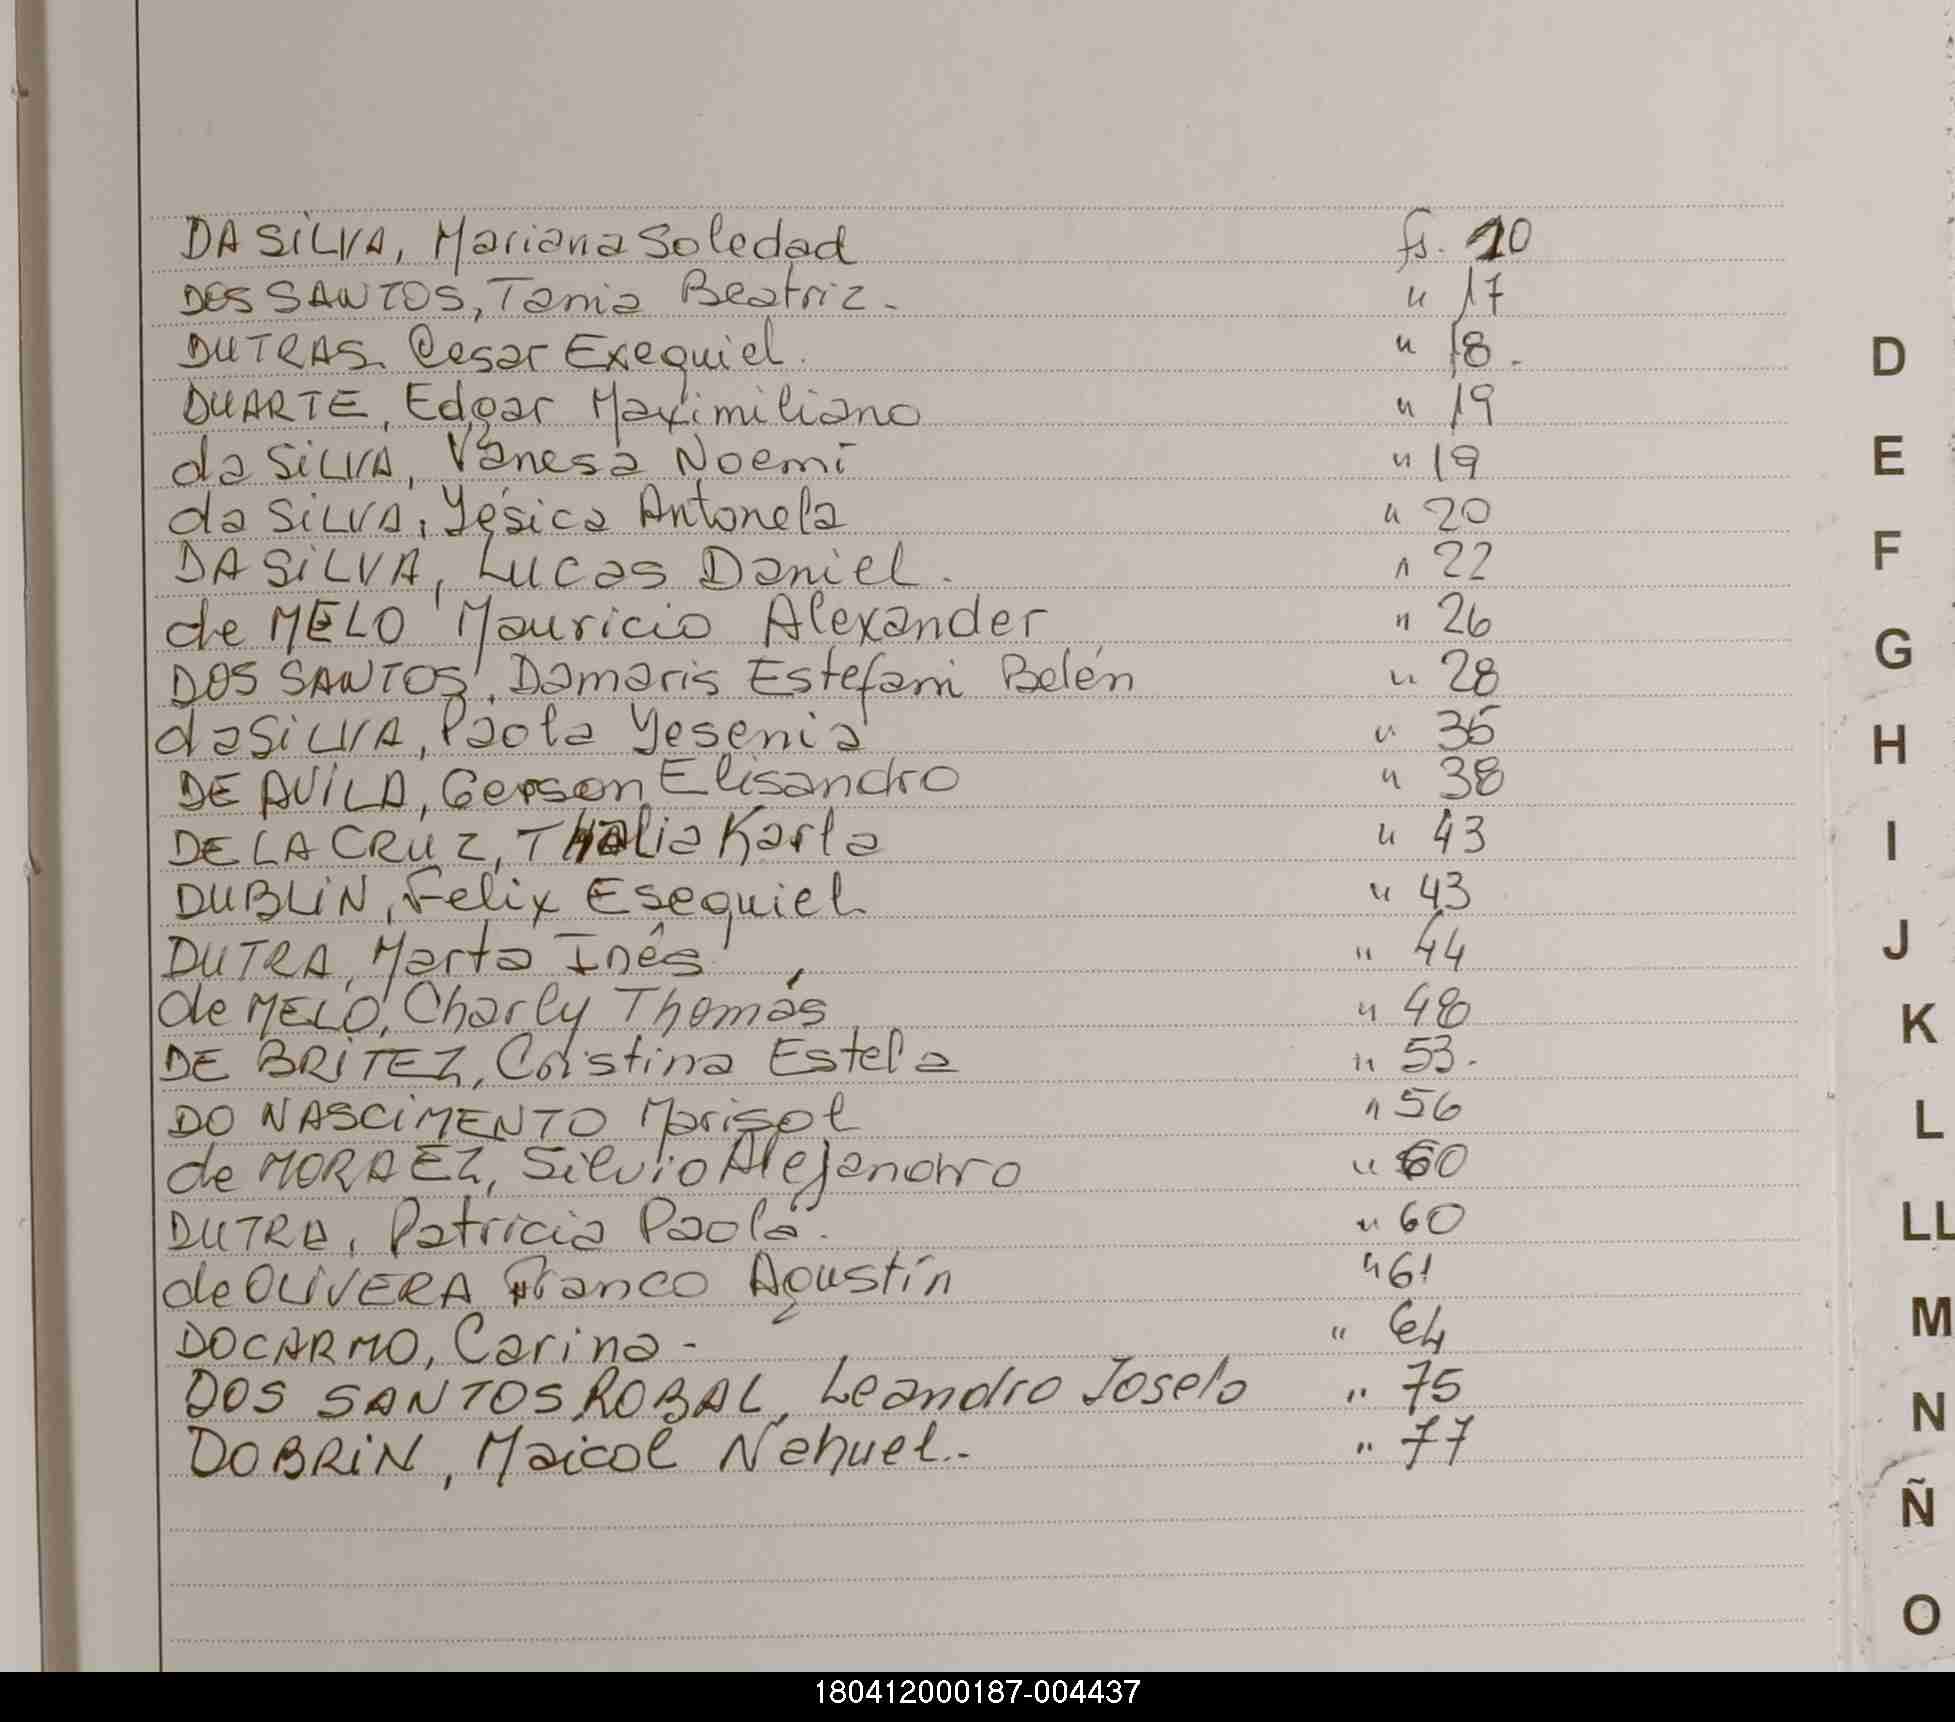 DA SILVA, Mariana Soledad fs. 10
DOS SANTOS, Tania Beatriz. " 17
DUTRAS. Cesar Exequiel. " 18.
DUARTE, Edgar Maximiliano " 19
da SILVA, Vanesa Noemí " 19
da SILVA, Yésica Antonela " 20
DA SILVA, Lucas Daniel. " 22
de MELO Mauricio Alexander " 26
DOS SANTOS, Damaris Estefani Belén " 28
da SILVA, Paola Yesenia " 36
DE AVILA, Gerson Elisandro " 38
DE LA CRUZ, Thalia Karla " 43
DUBLIN, Felix Esequiel " 43
DUTRA, Marta Inés " 44
de MELO, Charly Thomás " 48
DE BRITEZ, Cristina Estela " 53.
DO NASCIMENTO Marisol " 56
de MORAEZ, Silvio Alejandro " 60
DUTRA, Patricia Paola. " 60
de OLIVERA Franco Agustín " 61
DOCARMO, Carina - " 64
DOS SANTOS ROBAL, Leandro Joselo " 75
DOBRIN, Maicol Nahuel.- " 77
D
E
F
G
H
I
J
K
L
LL
M
N
Ñ
O
180412000187-004437